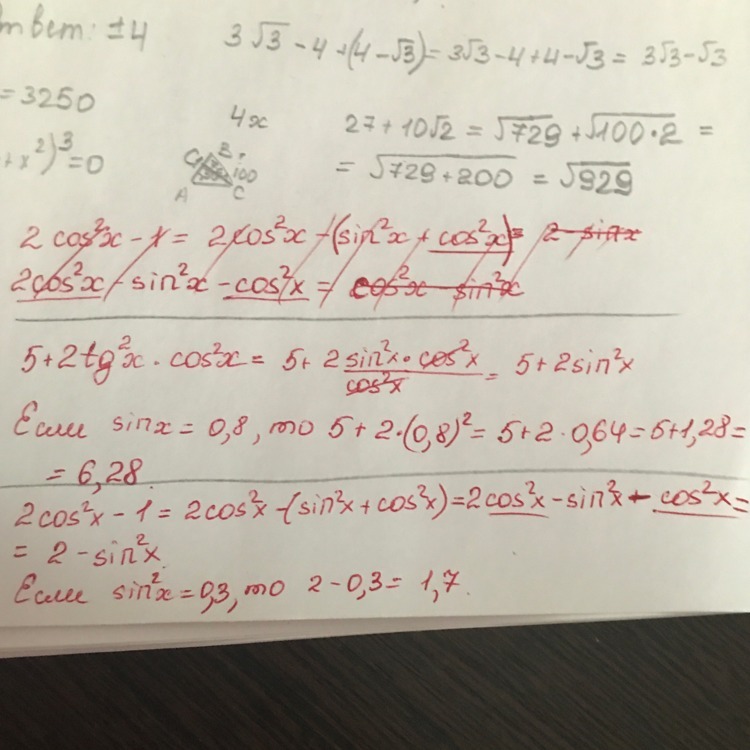 твет: ±4
3√3 - 4 + (4 - √3) = 3√3 - 4 + 4 - √3 = 3√3 - √3
= 3250
4x
27 + 10√2 = √729 + √100·2 =
+ x²)³ = 0
B
100
A C
= √729 + 200 = √929
2 cos²x - 1 = 2cos²x - (sin²x + cos²x) = 2 - sin x
2cos²x - sin²x - cos²x = cos²x - sin²x
5 + 2tg²x · cos²x = 5 + 2 sin²x · cos²x / cos²x = 5 + 2sin²x
Если sin x = 0,8, то 5 + 2·(0,8)² = 5 + 2 · 0,64 = 5 + 1,28 =
= 6,28.
2cos²x - 1 = 2cos²x - (sin²x + cos²x) = 2cos²x - sin²x - cos²x =
= 2 - sin²x
Если sin²x = 0,3, то 2 - 0,3 = 1,7.